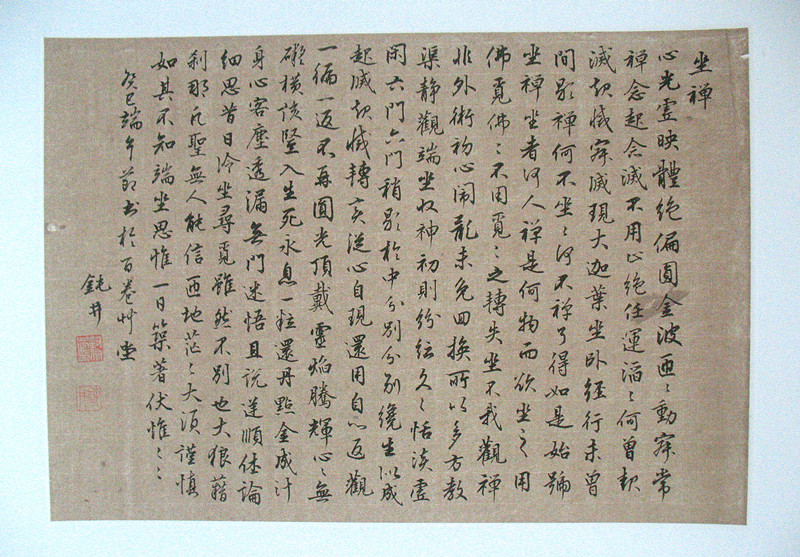 坐禪
心光虛映體絕偏圓金波匝〻動寂常
禪念起念滅不用止絕任運滔〻何曾起
滅起滅寂滅現大迦葉坐臥經行未曾
間歇禪何不坐〻何不禪了得如是始號
坐禪坐者何人禪是何物而欲坐之用
佛覓佛〻不用覓〻之轉失坐不我觀禪
非外術初心鬧亂未免回換所以多方教
渠靜觀端坐收神初則紛紜久〻恬淡虛
閑六門六門稍歇於中分別分別纔生似成
起滅起滅轉變從心自現還用自心返觀
一徧一返不再圓光頂戴靈焰騰輝心〻無
礙橫該竪入生死永息一粒還丹點金成汁
身心客塵透漏無門迷悟且說逆順休論
細思昔日冷坐尋覓雖然不別也大狼藉
剎那凡聖無人能信匝地茫〻大須謹慎
如其不知端坐思惟一日築著伏惟〻〻
癸巳端午節書於百卷艸堂
鈍井